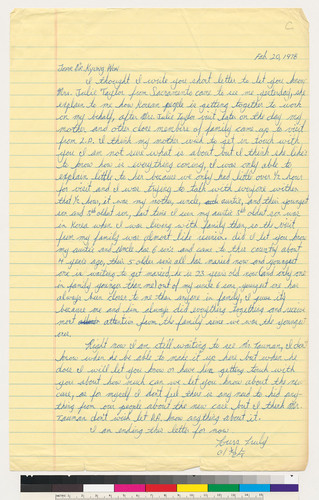 C
Feb. 20, 1978
Dear Dr. Kyung Won
I thought I write you short letter to let you know
Mrs. Julie Taylor from Sacramento came to see me yesterday, she
explain to me how Korean people is getting together to work
in my behalf, after Mrs. Julie Taylor just late on the day my
mother and other close members of family came up to visit
from L.A. I think my mother wish to get in touch with
you I am not sure what is about but I think she likes
to know how is everything coming, I was only able to
explain little to her because we only had little over ½ hour
for visit and I was trying to talk with everyone within
that ½ hour, it was my mother, uncle, auntie, and their youngest
son and 5th oldest son, last time I saw my auntie 5th oldest son was
in Korea when I was living with family there, so the visit
from my family was almost like reunion did I let you know
my auntie and uncle has 6 sons and came to this country about
4 years ago, their 5 older sons all has married now and youngest
one is waiting to get married he is 23 years old now and only one
in family younger than me out of my uncle 6 sons, youngest one has
always been close to me than anyone in family, I guess its
because me and him always did everything together and receive
most attention from the family since we was the youngest
one.
Right now I am still waiting to see Mr. Tauman, I don't
know when he be able to make it up here but when he
does I will let you know or have him getting touch with
you about how much can we let you know about the new
case, as for myself I don't feel there is any need to hid any-
thing from our people about the new case but I think Mr.
Tauman don't wish let D.A. know anything about it.
I am ending this letter for now.
Yours Truly
이철수